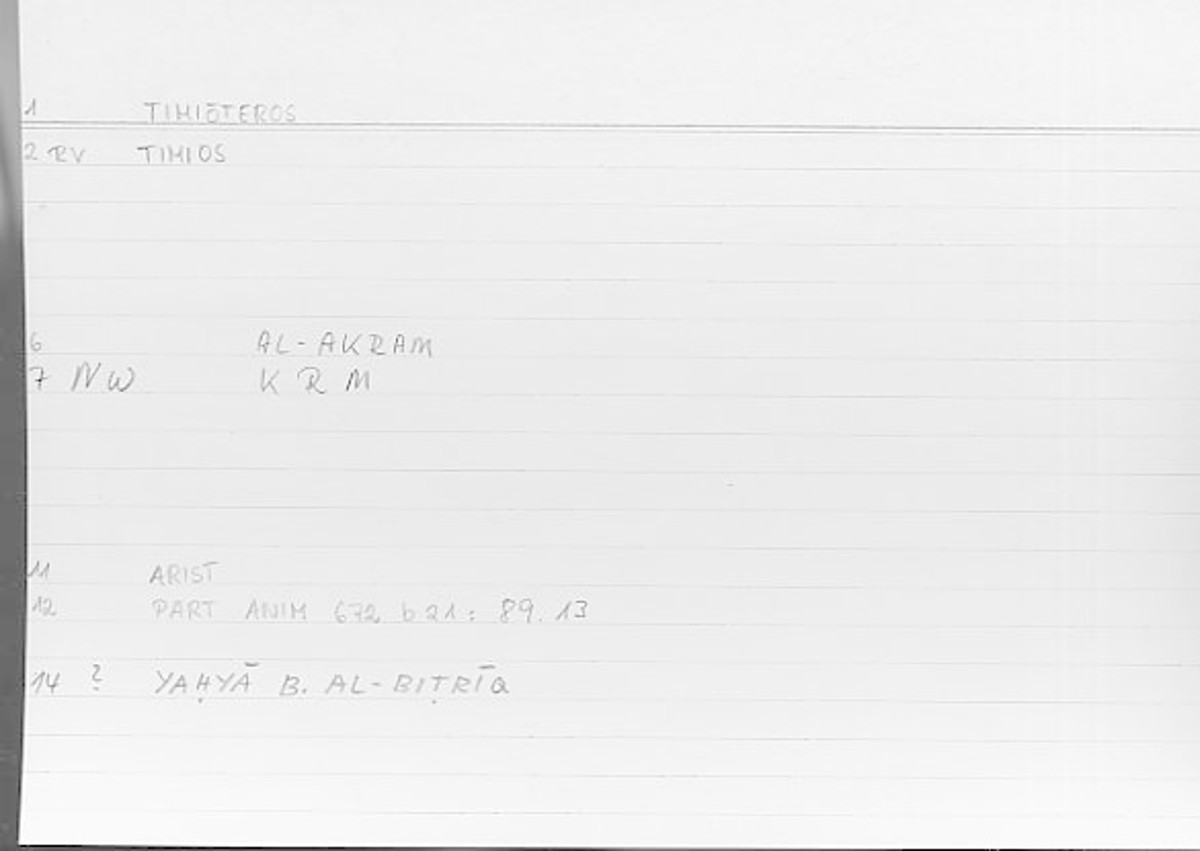 1 TIMIŌTEROS
2 RV TIMIOS
6 AL-AKRAM
7 NW K R M
11 ARIST
12 PART ANIM 672 b 21 : 89.13
14 ? YAḤYĀ B. AL-BIṬRĪQ